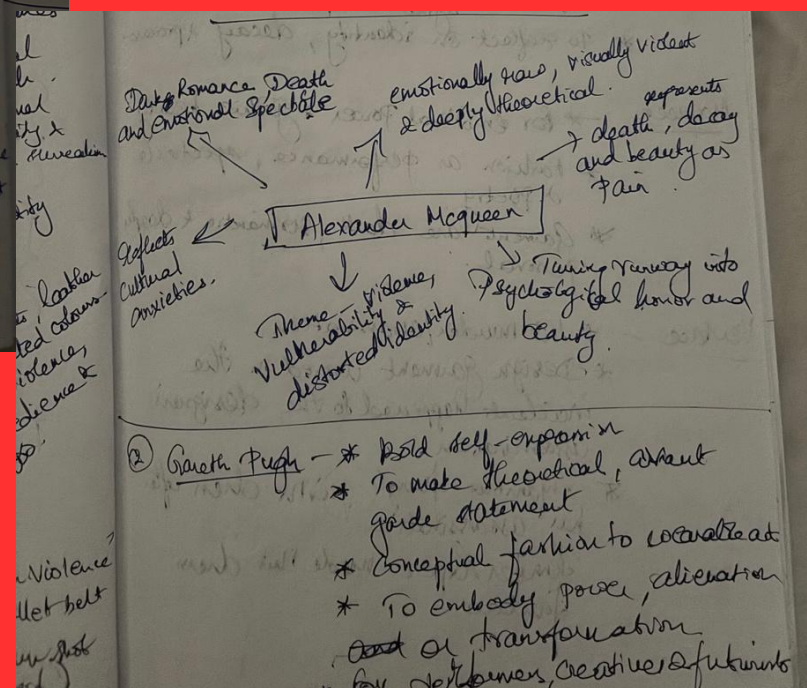 Dark Romance, Death
and Emotional Spectacle
emotionally raw, visually violent
& deeply theoretical.
represents
death, decay
and beauty as
pain.
Alexander Mcqueen
Reflects
Cultural
anxieties.
Theme - violence,
Vulnerability &
distorted identity.
Turning runway into
Psychological horror and
beauty.
② Gareth Pugh - * Bold self-expression
* To make theoretical, avant
garde statement
* Conceptual fashion to wearable art
* To embody power, alienation
or transformation
for performers, creatives & futurists
leather
ted colours.
violence,
dience &
Violence
llet belt